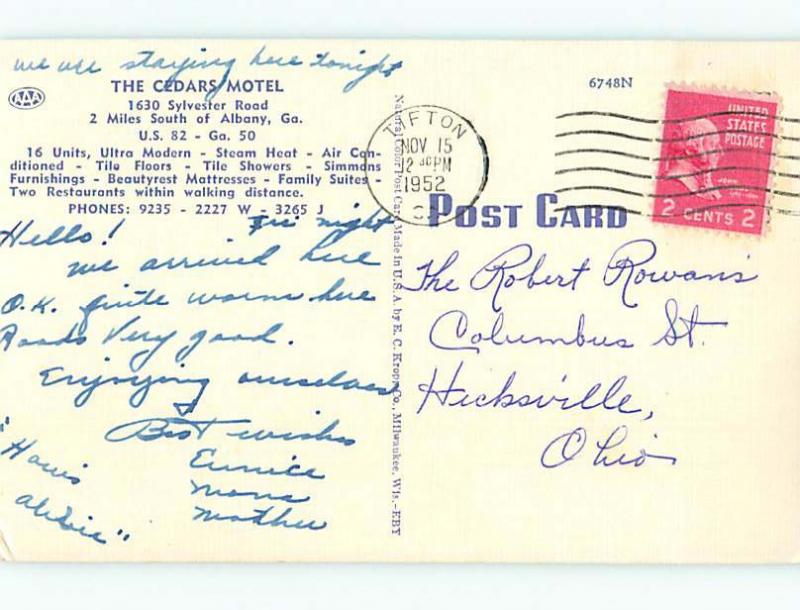 we are staying here tonight
AAA
THE CEDARS MOTEL
1630 Sylvester Road
2 Miles South of Albany, Ga.
U.S. 82 - Ga. 50
16 Units, Ultra Modern - Steam Heat - Air Con-
ditioned - Tile Floors - Tile Showers - Simmons
Furnishings - Beautyrest Mattresses - Family Suites -
Two Restaurants within walking distance.
PHONES: 9235 - 2227 W - 3265 J
Fri night
Hello!
we arrived here
O.K. quite warm here
Roads Very good.
Enjoying ourselves
Best wishes
Eunice
Mona
Mother
"Howis
Natural Color Post Card Made in U.S.A. by E. C. Kropp Co., Milwaukee, Wis.-EBY
6748N
TIFTON
NOV 15
12 30 PM
1952
UNITED
STATES
POSTAGE
2 CENTS 2
POST CARD
The Robert Rowans
Columbus St.
Hicksville,
Ohio